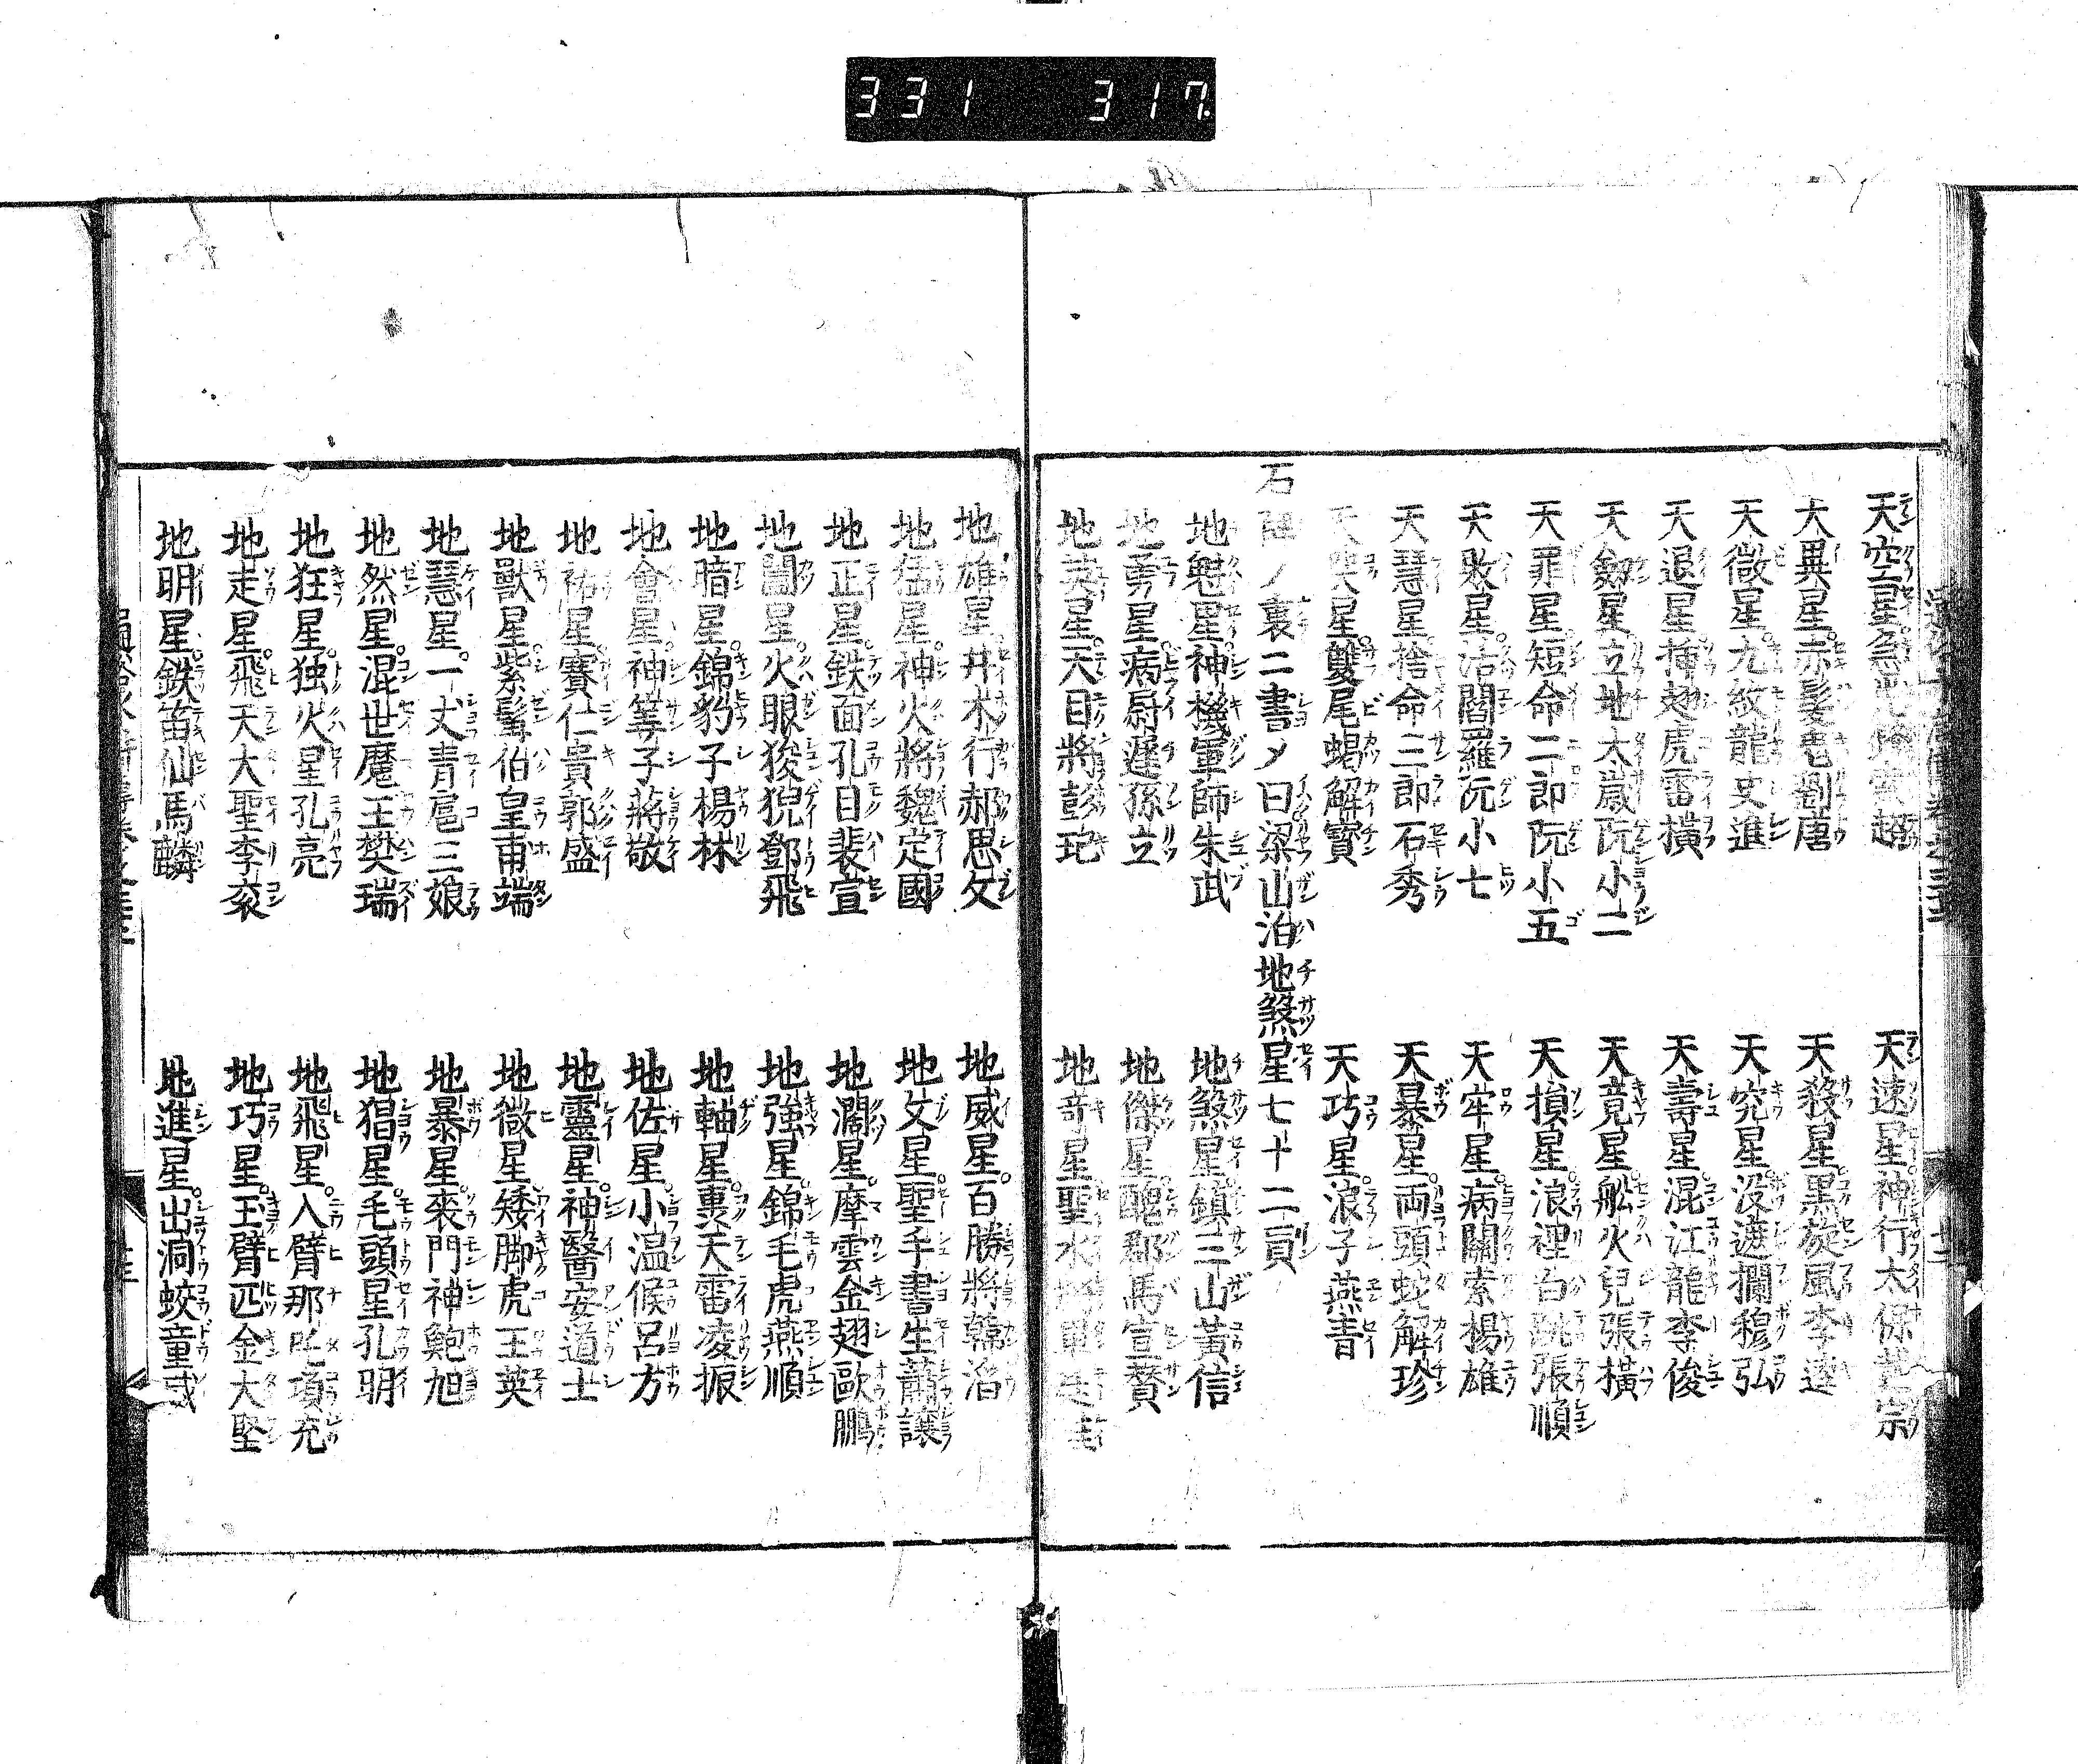 331 317
天空星急先鋒索超 天速星神行太保戴宗
天異星赤髮鬼劉唐 天殺星黒旋風李逵
天微星九紋龍史進 天究星没遮攔穆弘
天退星挿翅虎雷横 天壽星混江龍李俊
天劔星立地太歳阮小二 天竟星舩火兒張横
天罪星短命二郎阮小五 天損星浪裡白跳張順
天敗星活閻羅阮小七 天牢星病關索楊雄
天慧星捨命三郎石秀 天暴星両頭蛇解珍
天哭星雙尾蝎解寳 天巧星浪子燕青
石碑ノ裏ニ書メ曰梁山泊地煞星七十二員
地魁星神機軍師朱武 地煞星鎮三山黄信
地勇星病尉遲孫立 地傑星醜郡馬宣贊
地英星天目將彭玘 地竒星聖水將單廷珪
地雄星井木行郝思文 地威星百勝將韓滔
地猛星神火將魏定國 地文星聖手書生蕭讓
地正星鉄面孔目裴宣 地濶星摩雲金翅歐鵬
地闔星火眼狻猊鄧飛 地強星錦毛虎燕順
地暗星錦豹子楊林 地軸星轟天雷凌振
地會星神筭子蔣敬 地佐星小温候呂方
地祐星賽仁貴郭盛 地靈星神醫安道士
地獸星紫髯伯皇甫端 地微星矮脚虎王英
地慧星一丈青扈三娘 地暴星喪門神鮑旭
地然星混世魔王樊瑞 地猖星毛頭星孔明
地狂星独火星孔亮 地飛星八臂那吒項充
地走星飛天大聖李袞 地巧星玉臂匠金大堅
地明星鉄笛仙馬麟 地進星出洞蛟童威